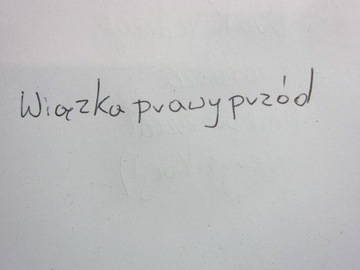 Wiązka prawy przód